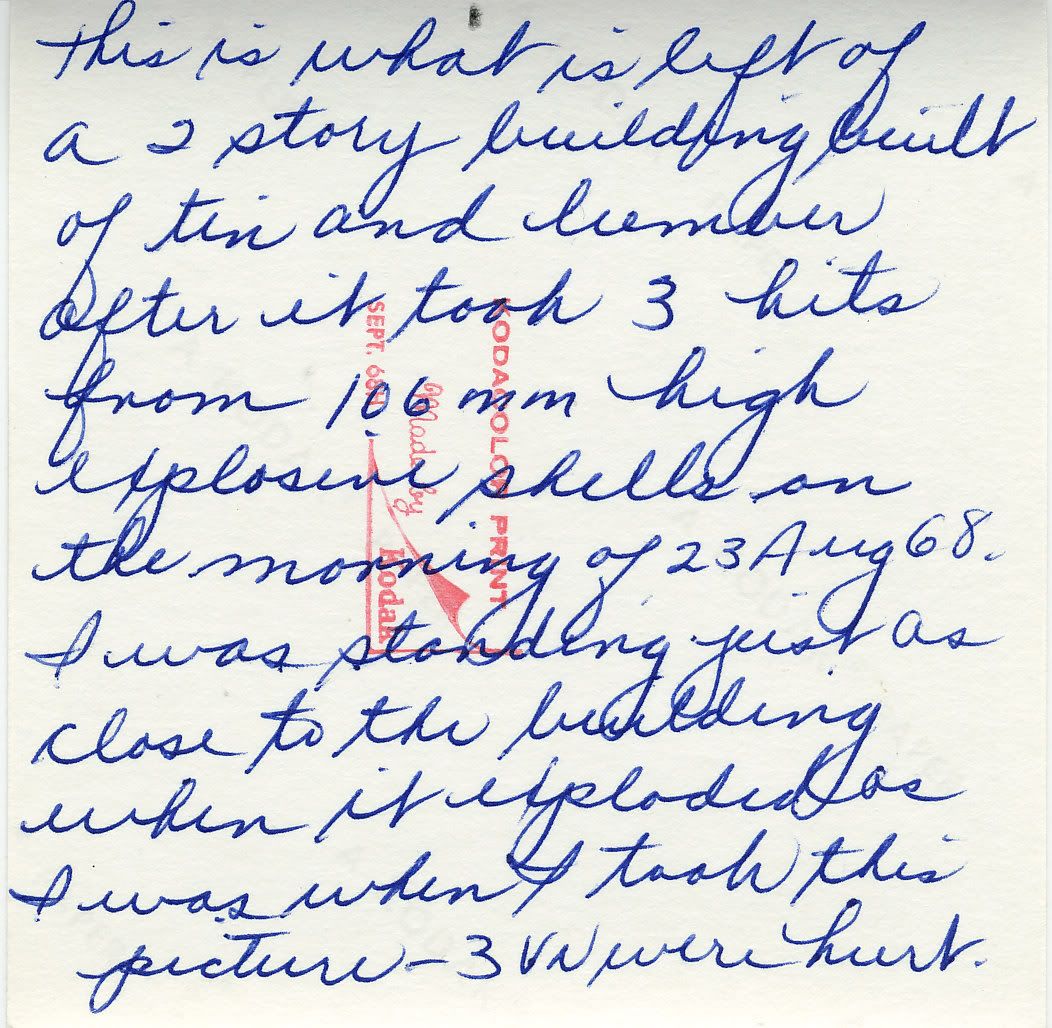 This is what is left of
a 2 story building built
of tin and lumber
after it took 3 hits
from 106 mm high
explosive shells on
the morning of 23 Aug 68.
I was standing just as
close to the building
when it exploded as
I was when I took this
picture - 3 VN were hurt.
KODACOLOR PRINT
Made by
Kodak
SEPT. 68